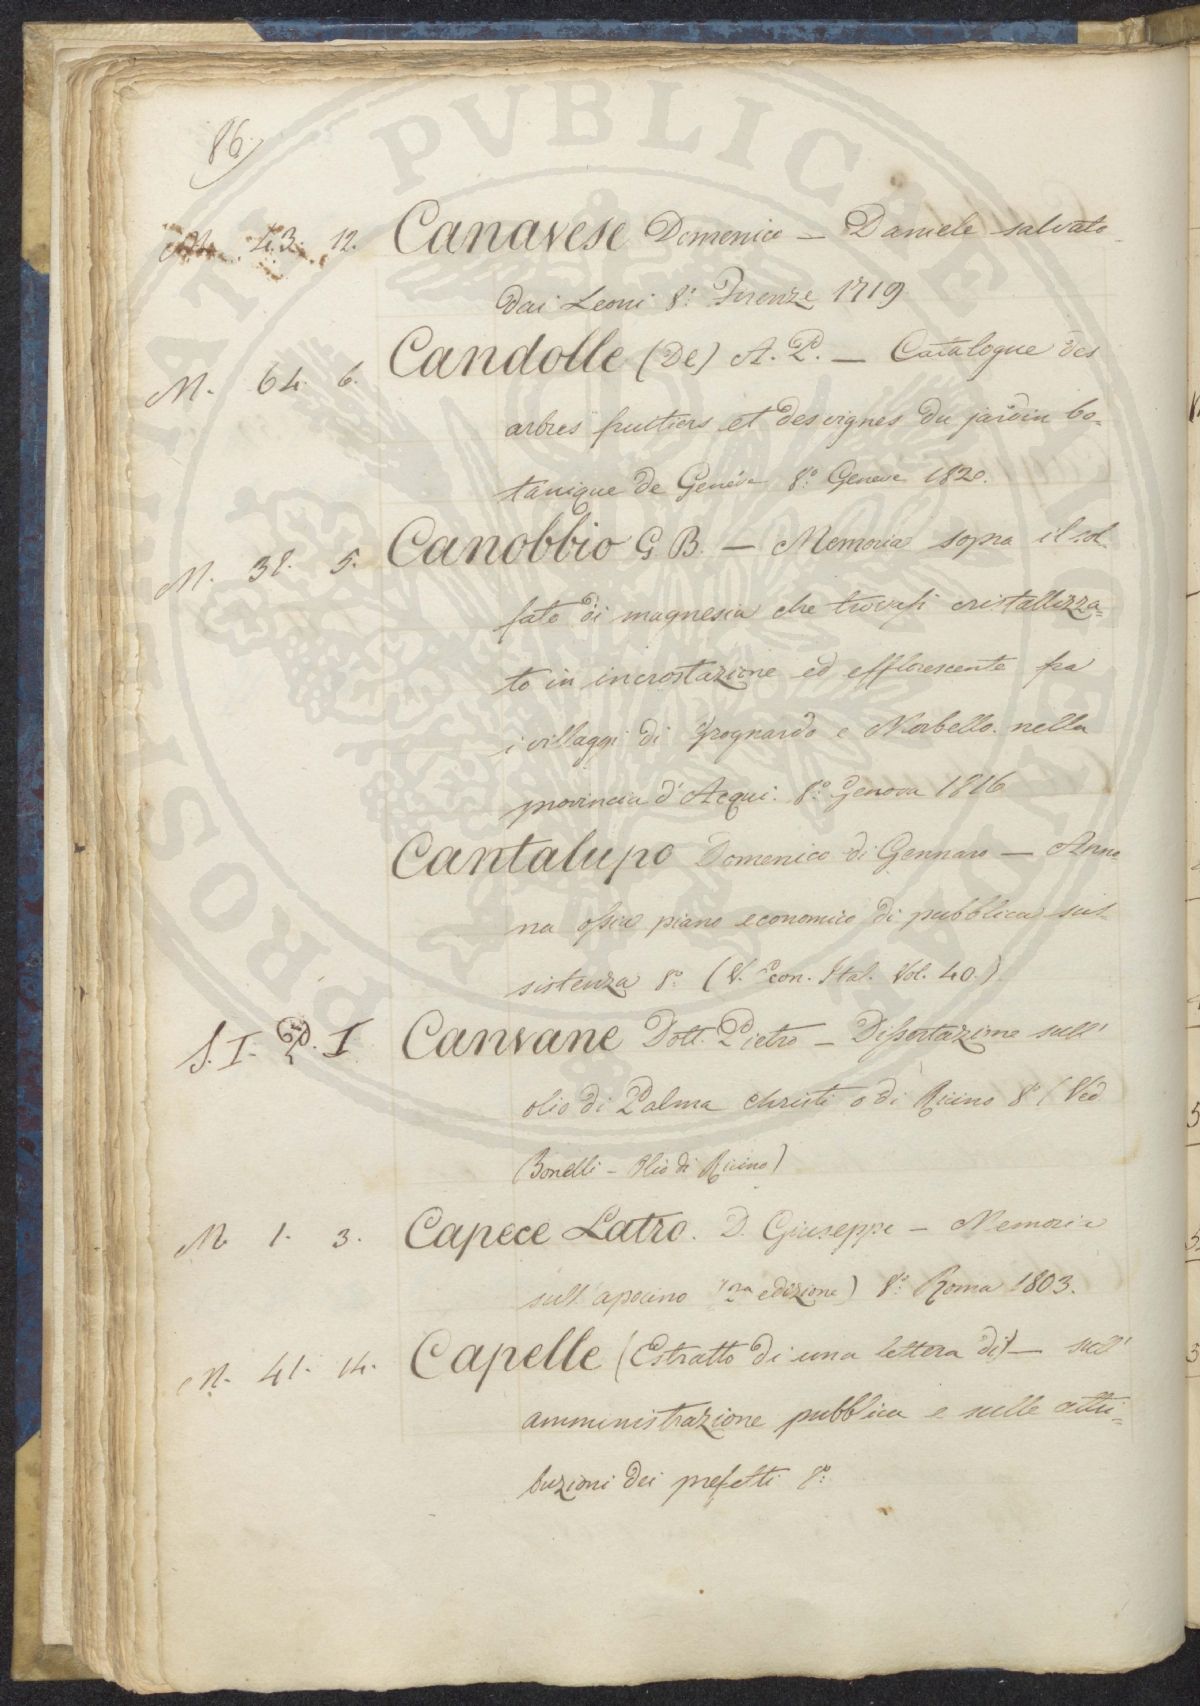 86
M. 43. 12. Canavese Domenico — Daniele salvato
dai Leoni 8.º Firenze 1719
M. 64. 6. Candolle (De) A. P. — Catalogue des
arbres fruitiers et des vignes du jardin bo-
tanique de Genève 8.º Geneve 1820.
M. 38. 5. Canobbio G. B. — Memoria sopra il sol-
fato di magnesia che trovasi cristallizza=
to in incrostazione ed efflorescente fra
i villaggi di Grognardo e Morbello nella
provincia d'Acqui. 8.º Genova 1816
Cantalupo Domenico di Gennaro — Anno
na ossia piano economico di pubblica sus-
sistenza 8.º (V. Econ. Ital. Vol. 40.)
S. I. I Canvane Dott. Pietro — Dissertazione sull'
olio di Palma Christi o di Ricino 8.º (Ved
Bonelli — Olio di Ricino)
M. 1. 3. Capece Latro. D. Giuseppe — Memoria
sull'apocino edizione) 8.º Roma 1803.
M. 41. 14. Capelle (Estratto di una lettera di) — sull'
amministrazione pubblica e sulle attri=
buzioni dei prefetti 8.º
PROSPERITATI PVBLICAE AVGENDAE